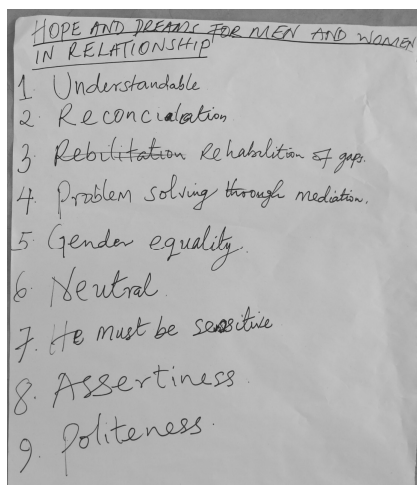 HOPE AND DREAMS FOR MEN AND WOMEN
IN RELATIONSHIP
1. Understandable
2. Reconcialation
3. Rebilitation Rehabilition of gaps.
4. Problem solving through mediation.
5. Gender equality.
6. Neutral.
7. He must be sensitive
8. Assertiness.
9. Politeness.